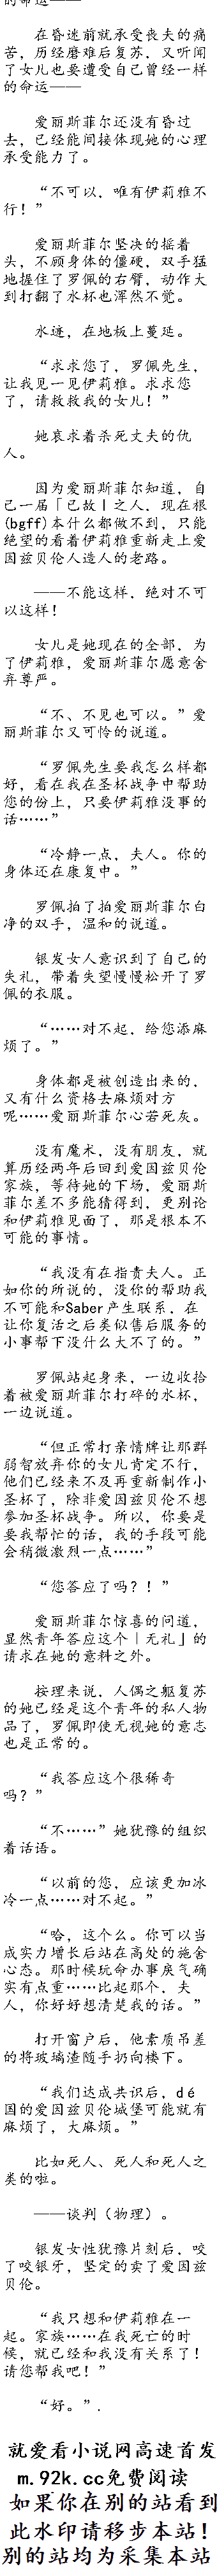 的命运——
在昏迷前就承受丧夫的痛
苦，历经磨难后复苏，又听闻
了女儿也要遭受自己曾经一样
的命运——
爱丽斯菲尔还没有昏过
去，已经能间接体现她的心理
承受能力了。
“不可以，唯有伊莉雅不
行！”
爱丽斯菲尔坚决的摇着
头，不顾身体的僵硬，双手猛
地握住了罗佩的右臂，动作大
到打翻了水杯也浑然不觉。
水迹，在地板上蔓延。
“求求您了，罗佩先生，
让我见一见伊莉雅。求求您
了，请救救我的女儿！”
她哀求着杀死丈夫的仇
人。
因为爱丽斯菲尔知道，自
己一届「已故丨之人，现在根
(bgff)本什么都做不到，只能
绝望的看着伊莉雅重新走上爱
因兹贝伦人造人的老路。
——不能这样，绝对不可
以这样！
女儿是她现在的全部，为
了伊莉雅，爱丽斯菲尔愿意舍
弃尊严。
“不、不见也可以。”爱
丽斯菲尔又可怜的说道。
“罗佩先生要我怎么样都
好，看在我在圣杯战争中帮助
您的份上，只要伊莉雅没事的
话……”
“冷静一点，夫人。你的
身体还在康复中。”
罗佩拍了拍爱丽斯菲尔白
净的双手，温和的说道。
银发女人意识到了自己的
失礼，带着失望慢慢松开了罗
佩的衣服。
“……对不起，给您添麻
烦了。”
身体都是被创造出来的，
又有什么资格去麻烦对方
呢……爱丽斯菲尔心若死灰。
没有魔术，没有朋友，就
算历经两年后回到爱因兹贝伦
家族，等待她的下场，爱丽斯
菲尔差不多能猜得到，更别论
和伊莉雅见面了，那是根本不
可能的事情。
“我没有在指责夫人。正
如你的所说的，没你的帮助我
不可能和Saber产生联系，在
让你复活之后类似售后服务的
小事帮下没什么大不了的。”
罗佩站起身来，一边收拾
着被爱丽斯菲尔打碎的水杯，
一边说道。
“但正常打亲情牌让那群
弱智放弃你的女儿肯定不行，
他们已经来不及再重新制作小
圣杯了，除非爱因兹贝伦不想
参加圣杯战争。所以，你要是
要我帮忙的话，我的手段可能
会稍微激烈一点……”
“您答应了吗？！”
爱丽斯菲尔惊喜的问道，
显然青年答应这个丨无礼」的
请求在她的意料之外。
按理来说，人偶之躯复苏
的她已经是这个青年的私人物
品了，罗佩即使无视她的意志
也是正常的。
“我答应这个很稀奇
吗？”
“不……”她犹豫的组织
着话语。
“以前的您，应该更加冰
冷一点……对不起。”
“哈，这个么。你可以当
成实力增长后站在高处的施舍
心态。那时候玩命办事戾气确
实有点重……比起那个，夫
人，你好好想清楚我的话。”
打开窗户后，他素质吊差
的将玻璃渣随手扔向楼下。
“我们达成共识后，dé
国的爱因兹贝伦城堡可能就有
麻烦了，大麻烦。”
比如死人、死人和死人之
类的啦。
——谈判（物理）。
银发女性犹豫片刻后，咬
了咬银牙，坚定的卖了爱因兹
贝伦。
“我只想和伊莉雅在一
起。家族……在我死亡的时
候，就已经和我没有关系了！
请您帮我吧！”
“好。”.
就爱看小说网高速首发
m.92k.cc免费阅读
如果你在别的站看到
此水印请移步本站！
别的站均为采集本站